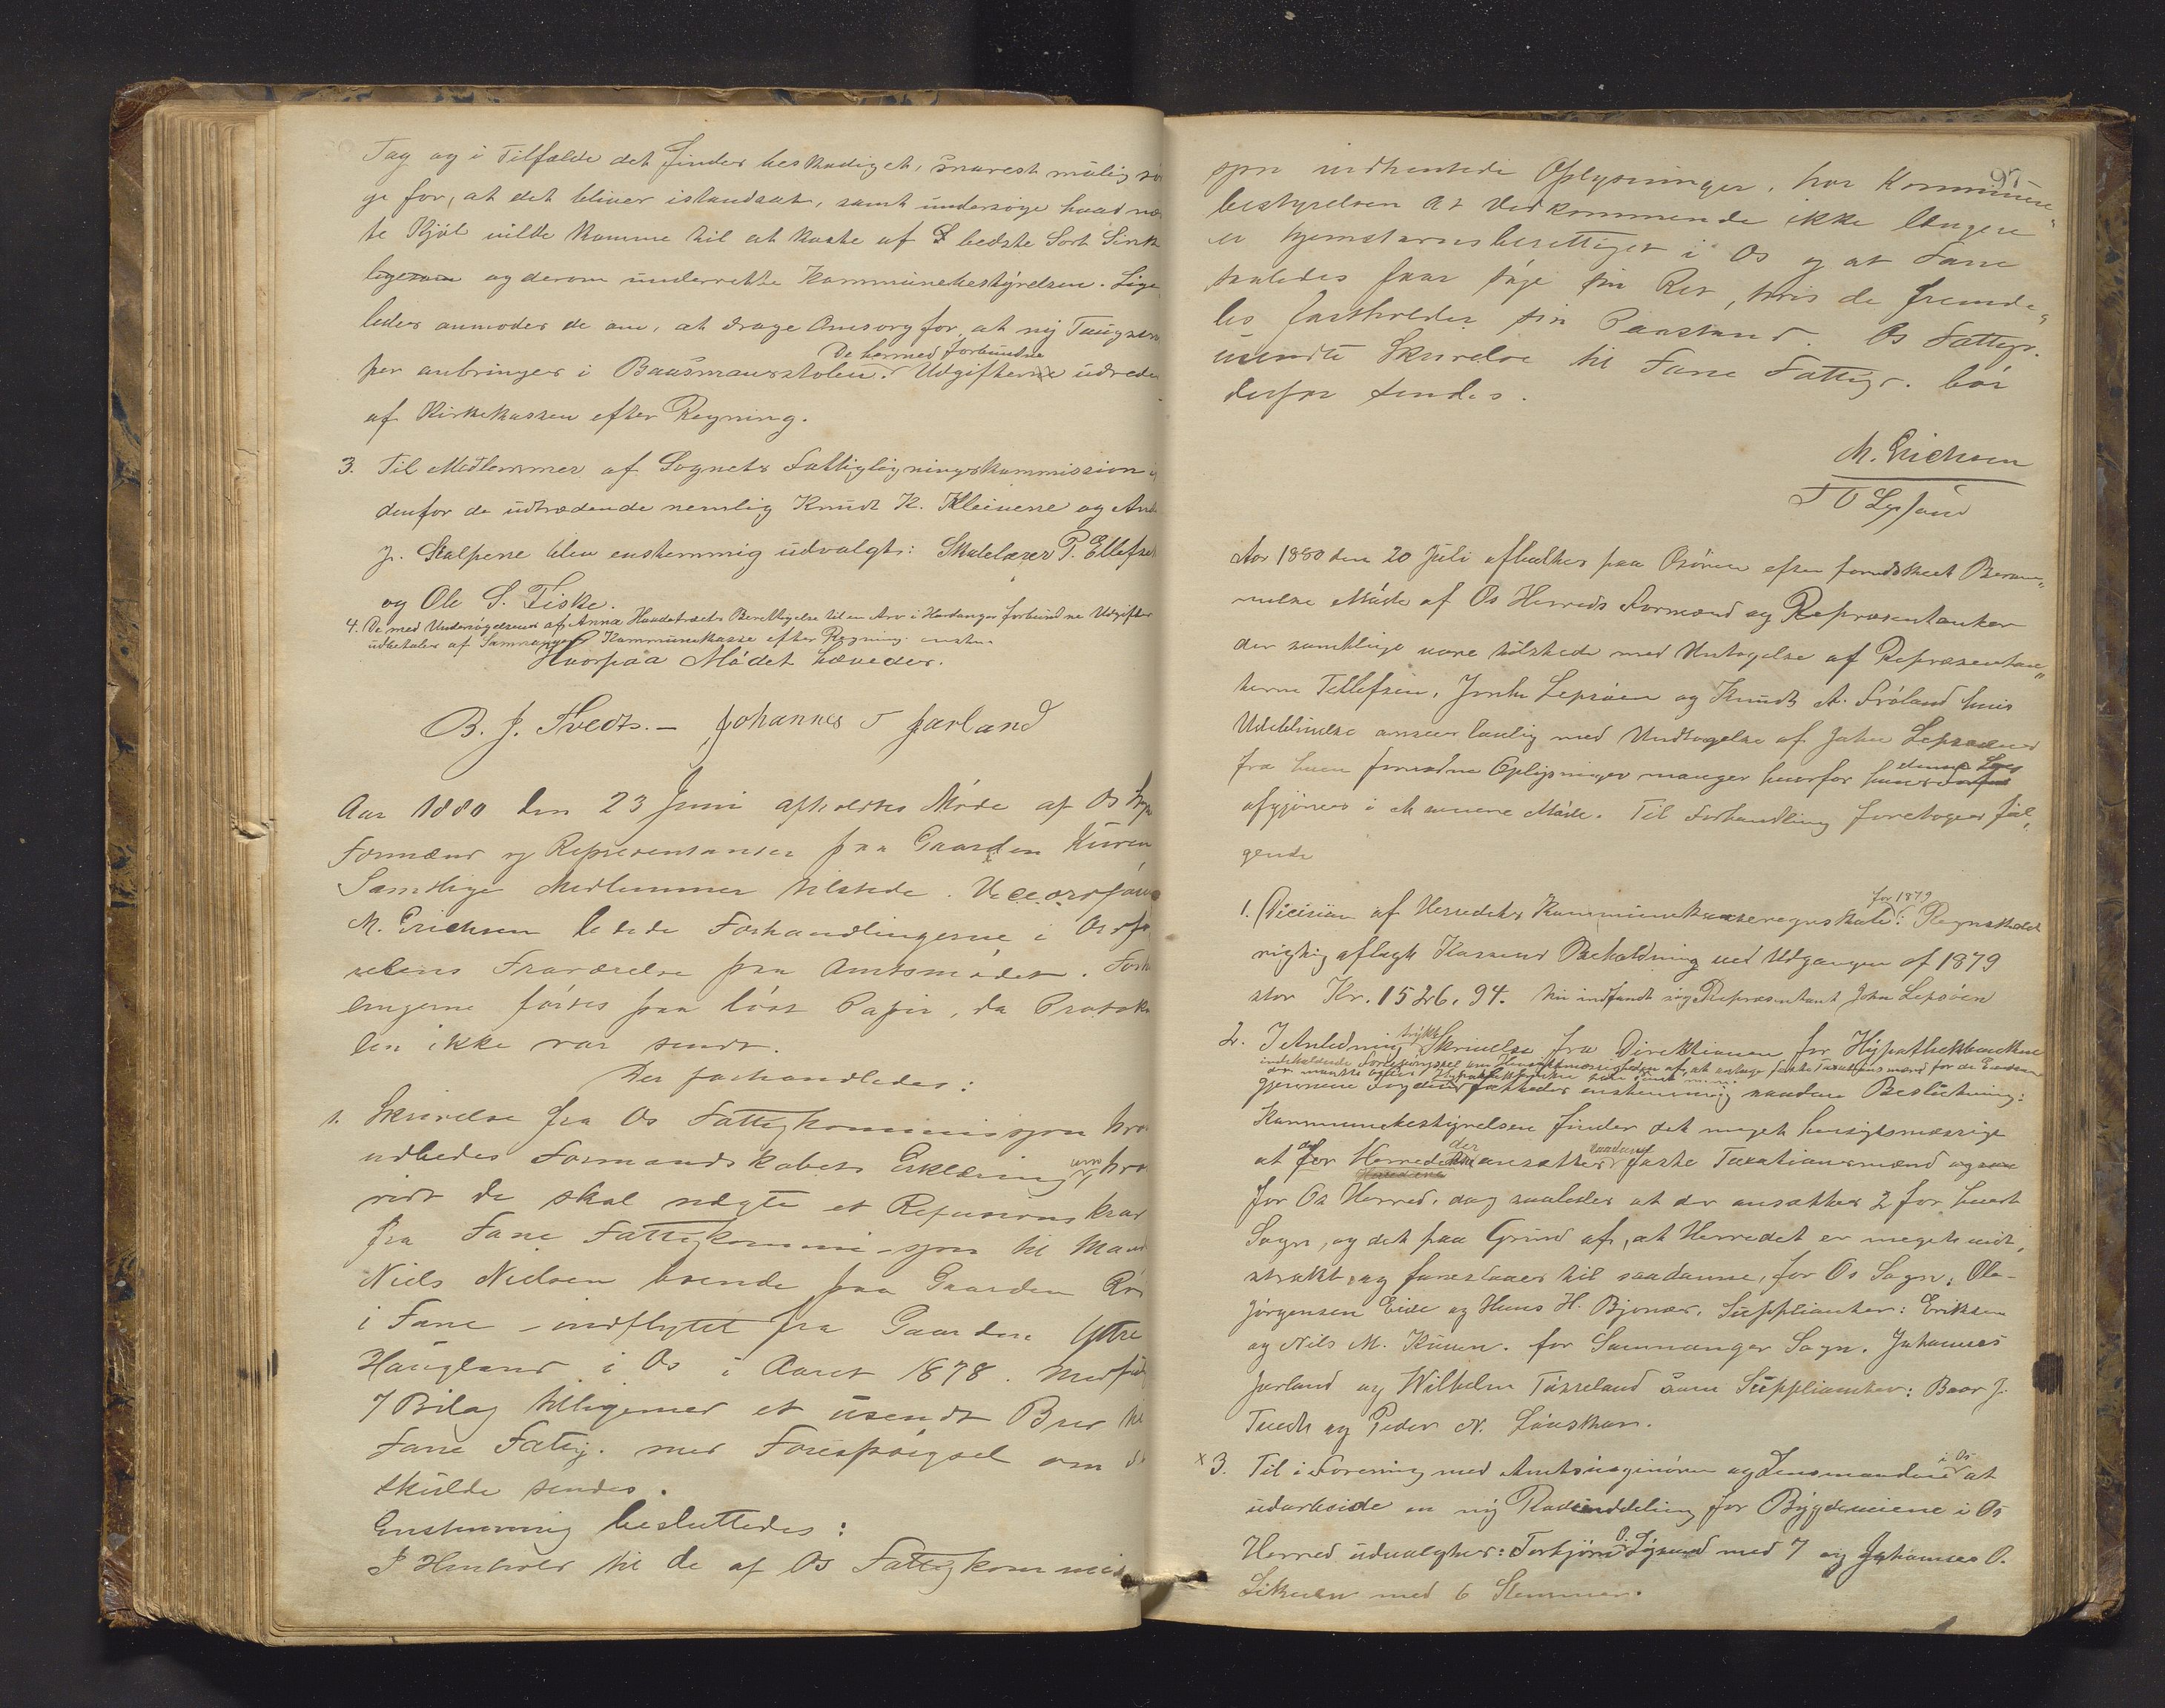 Tag og i Tilfælde det findes beskadiget, snarest mulig sø
ge for, at det bliver istandsat, samt undersøge hvad
te Kjøl vilde komme til at koste af bedste Sort Sink
ligesom og derom underrette Kommunebestyrelsen. Lige
ledes anmodes de om, at drage Omsorg for at ny
De hermed forbundne
per anbringes i Baasmanrstolen. Udgifterne udrede
af Kirkekassen efter Regning.
3. Til Medlemmer af Sognets Fattigligningskommission i
denfor de udtrædende nemlig Knudt K. Kleivene og And
J. Stalpene blev enstemmig udvalgt: Skolelærer P. Ellefsen
og Ole S. Fiske.
4. De med Undersøgelsen af Anna Berettigelse til en Arv i Hardanger forbundne Udgifter
udbetales af Samnanger Kommunekasse efter Regning
Hvorpaa Mødet hævedes.
B. J. Tvedt. - Johannes T Jarland
Aar 1880 den 23 Juni afholdtes Møde af Os
Formænd og Representanter paa Gaarden Kuven
Samtlige Medlemmer tilstede. Viceordføre
M. Erichsen ledede Forhandlingerne i Ordfø
relens Fraværelse paa Amtsmødet. Forh
lingerne førtes paa løst Papir, da Protoko
len ikke var sendt.
Der forhandledes:
1. Skrivelse fra Os Fattigkommissjon hvo
udbedes Formandskabets Erklæring om hvo
vidt de skal nægte et Refusions krav
fra Fane Fattigkommissjon til Mand
Niels Nielsen boende paa Gaarden
i Fane - indflyttet fra Gaarden Ytre
Haugland i Os i Aaret 1878. Medfulg
7 Bilag tilligemed et usendt Brev til
Fane Fattig. med Forespørgsel om d
skulde sendes.
Enstemmig besluttedes:
I Henhold til de af Os Fattigkommis
97
sjon indhentede Oplysninger, har Kommune„
bestyrelsen at Vedkommende ikke længere
er hjemstavnsberettiget i Os og at Fane
saaledes faar søge sin Ret, hvis de fremde„
les fastholder sin Paastand. Os Fattigk.
usendte Skrivelse til Fane Fattigk. bør
derfor sendes.
M. Erichsen
T O Lysund
Aar 1880 den 20 Juli afholdtes paa Osøren efter forudskeet Beram„
melse Møde af Os Herreds Formænd og Repræsentanter
der samtlige vare tilstede med Undtagelse af Repræsentan„
terne Tellefsen, John Lepsøen og Knudt A. Frøland hvis
Udeblivelse ansees lovlig med Undtagelse af John Lepsøen
fra hvem fornødne Oplysninger manger hvorfor denne
afgjøres i et senere Møde. Til Forhandling foretoges føl„
gende
1. Decision af Herredets Kommunekasseregnskab for 1879: Regnskabet
rigtig aflagt Kassens Beholdning ved Udgangen af 1879
stor Kr. 1526,94. Nu indfandt sig Repræsentant John Lepsøen
2. I Anledning trykt Skrivelse fra Direktionen for Hypothekbanken
indeholdende Forespørgsel om Hensigtsmæssigheden af, at antage faste Taxationsmænd for de
enstemmig saadan Beslutning:
Kommunebestyrelsen finder det meget hensigtsmæssige
at der for Herrederne ansættes saadanne faste Taxationsmænd
for Os Herred, dog saaledes at der ansættes 2 for hvert
Sogn, og det paa Grund af, at Herredet er meget vidt„
strakt, og foreslaaes til saadanne, for Os Sogn, Ole
Jørgensen Eide og Hans H. Bjonæs. Suppleanter: Eriksen
og Nils M. Kuven. for Samnanger Sogn. Johannes
Jarland og Wilhelm Tøsseland som Suppleanter: Baar J.
Tvedt og Peder N. Lønskar.
x 3. Til i Forening med Amtsingeniøren og Lensmanden i Os at
udarbeide en ny Rodeinddeling for Bygdeveiene i Os
Herred udvalgtes: Torbjørn O. Lysund med 7 og Johannes O.
med 6 Stemmer.